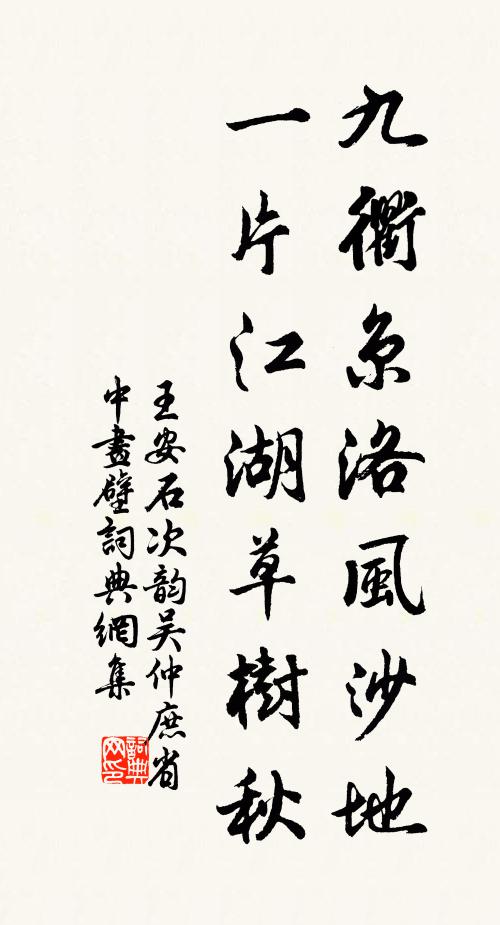 九衢京洛風沙地
一片江湖草樹秋
王安石次韵吴仲庶省
中畫壁詞典網集
詞典网印